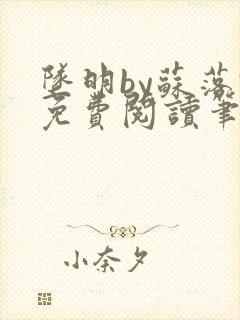 墜明by蘇落
免費閱讀筆
小奈夕